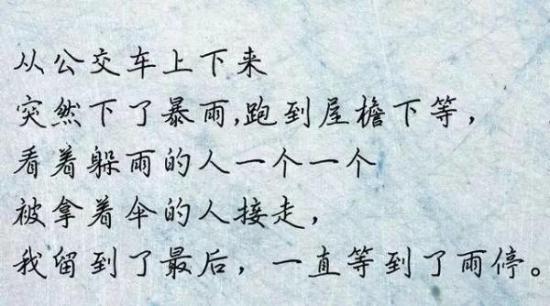 从公交车上下来
突然下了暴雨,跑到屋檐下等，
看着躲雨的人一个一个
被拿着伞的人接走，
我留到了最后，一直等到了雨停。